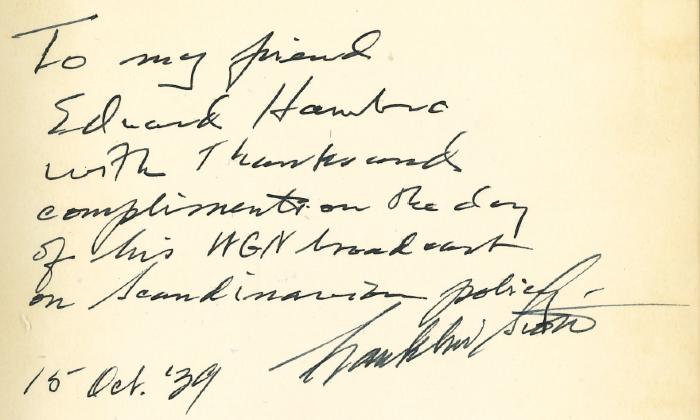 To my friend
Edvard Hambro
with thanks and
compliments on the day
of his WGN broadcast
on Scandinavian policy.
Franklin Scott
15 Oct. '39